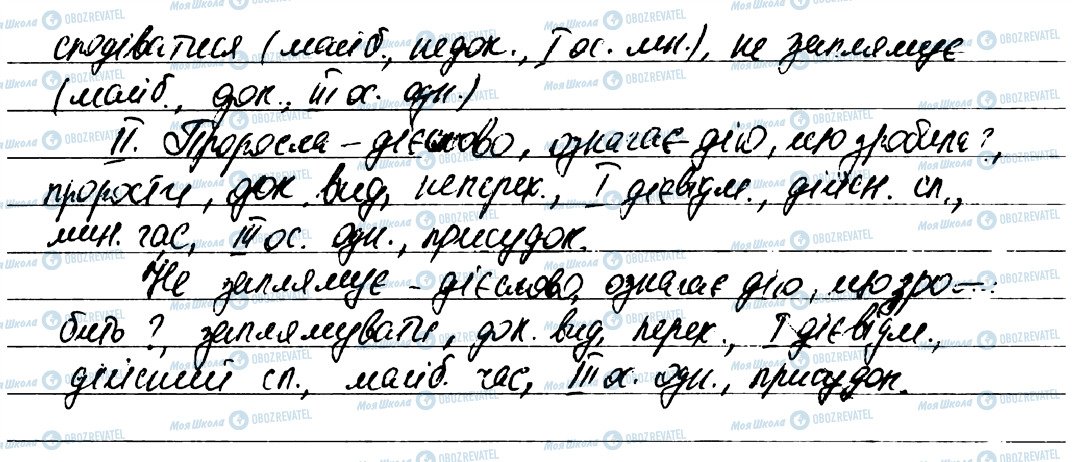 сподіватися (майб., недок., I ос. мн.), не заплямує
(майб., док., III ос. одн.)
II. Проросла – дієслово, означає дію, що зробила?,
прорости, док. вид, неперех., I дієвідм., дійсн. сп.,
мин. час, III ос. одн., присудок.
Не заплямує – дієслово, означає дію, що зро–
бить?, заплямувати, док. вид, перех., I дієвідм.,
дійсний сп., майб. час, III ос. одн., присудок.